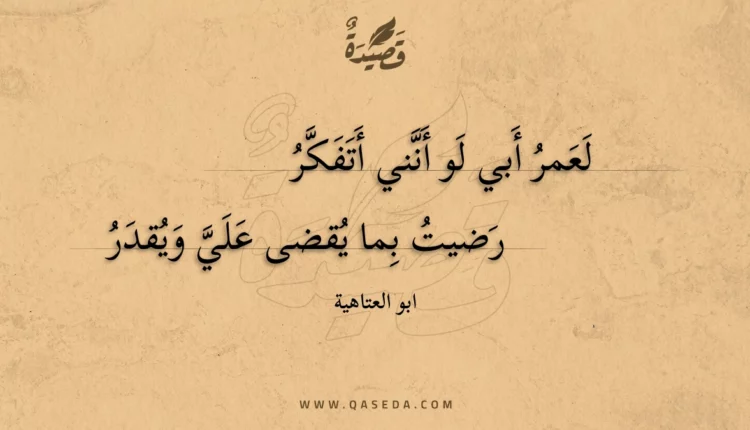 قَصِيْدَةٌ
لَعَمرُ أَبي لَو أَنَّني أَتَفَكَّرُ
رَضيتُ بِما يُقضى عَلَيَّ وَيُقدَرُ
ابو العتاهية
WWW.QASEDA.COM